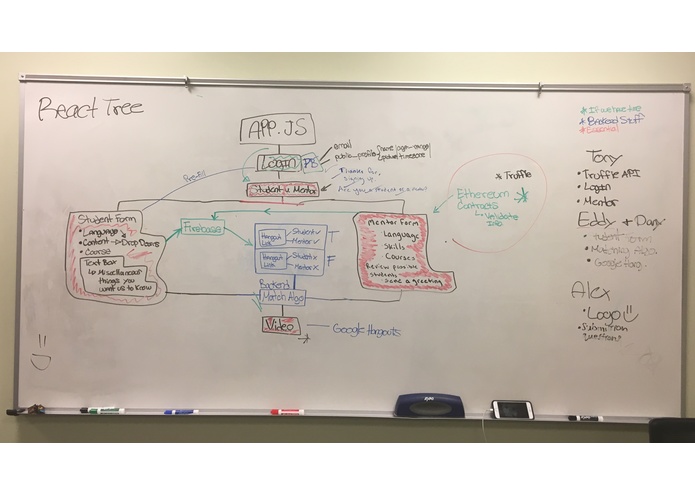 React Tree
APP.JS
Login
FB
email
public_profile
Thanks for
signing up.
Are you a
Pre-fill
Student or Mentor
* If we have time
* Backend Stuff
* Essential
* Truffle
Ethereum
Contracts
Validate
Info
Student Form
• Language
• Content → Drop Downs
• Course
Text Box
↳ Miscellaneous
things you
want us to know
Firebase
Hangout
Link
Student ✓
Mentor ✓
T
Hangout
Link
Student x
Mentor x
F
Backend
Match Algo
Video
Google Hangouts
Mentor Form
Language
Skills
Courses
Review possible
students
Send a greeting
Tony
• Truffle API
• Login
• Mentor
Eddy +
• Student Form
• Matching Algo
• Google Hang.
Alex
• Logo
• Submission
Questions